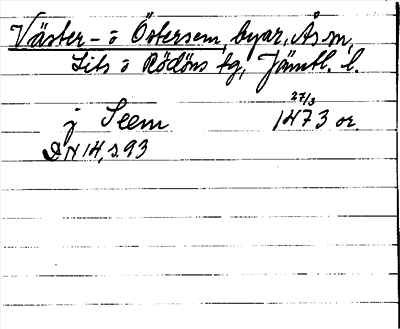 Väster- o Östersem, byar, Ås sn,
Lits o Rödöns tg, Jämtl. l.
j Seem 27/3 1473 or.
DN 14, s. 93